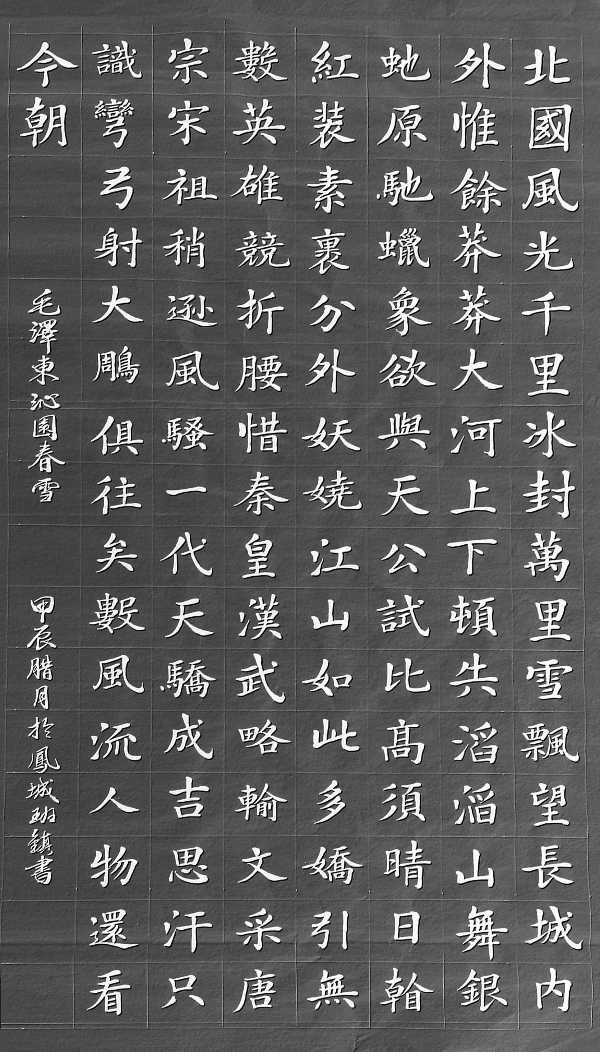 北國風光千里冰封萬里雪飄望長城内
外惟餘莽莽大河上下頓失滔滔山舞銀
虵原馳蠟象欲與天公試比髙須晴日
紅装素裹分外妖嬈江山如此多嬌引無
數英雄競折腰惜秦皇漢武略輸文采唐
宗宋祖稍遜風騷一代天驕成吉思汗只
識彎弓射大鵰俱往矣數風流人物還看
今朝
毛澤東沁園春雪
甲辰腊月於鳳城班鎮書